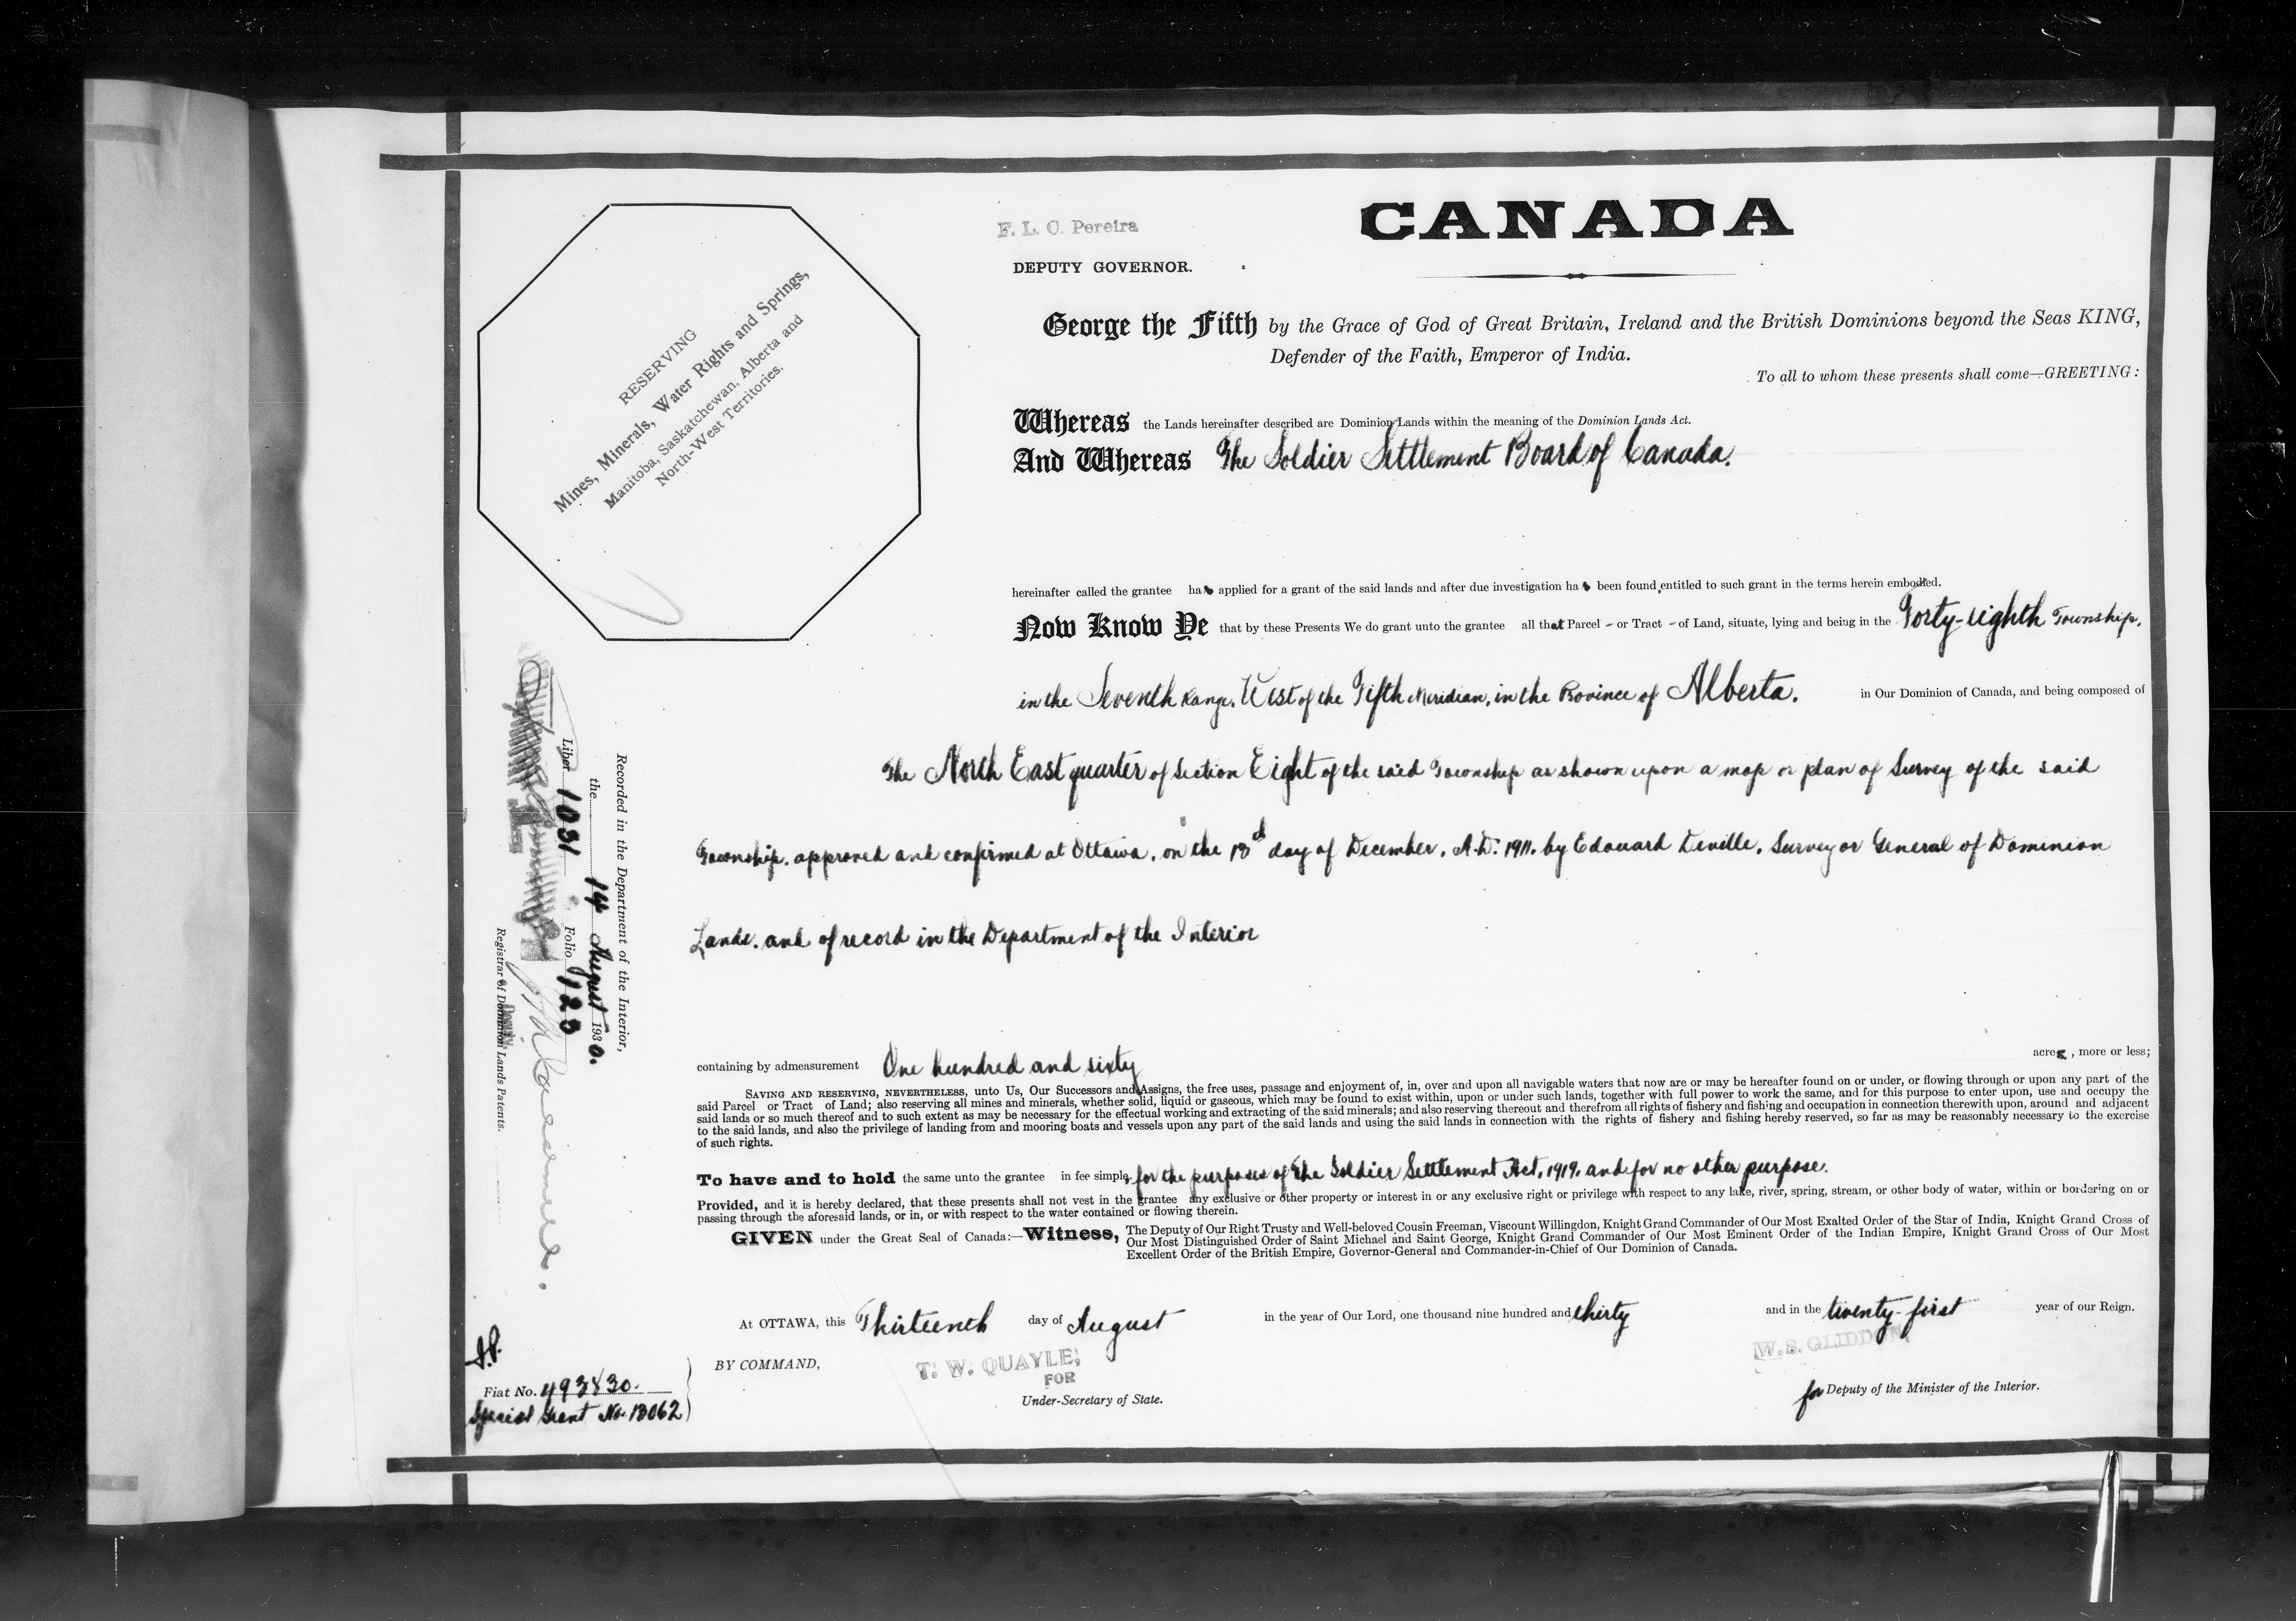 CANADA
F. L. C. Pereira
DEPUTY GOVERNOR.
RESERVING
Mines, Minerals, Water Rights and Springs,
Manitoba, Saskatchewan, Alberta and
North-West Territories.
George the Fifth by the Grace of God of Great Britain, Ireland and the British Dominions beyond the Seas KING,
Defender of the Faith, Emperor of India.
To all to whom these presents shall come—GREETING:
Whereas the Lands hereinafter described are Dominion Lands within the meaning of the Dominion Lands Act.
And Whereas The Soldier Settlement Board of Canada.
hereinafter called the grantee has applied for a grant of the said lands and after due investigation has been found entitled to such grant in the terms herein embodied.
Now Know Ye that by these Presents We do grant unto the grantee all that Parcel - or Tract - of Land, situate, lying and being in the Forty-eighth Township,
in the Seventh Range, West of the Fifth Meridian, in the Province of Alberta. in Our Dominion of Canada, and being composed of
The North East quarter of Section Eight of the said Township as shown upon a map or plan of Survey of the said
Township, approved and confirmed at Ottawa, on the 13th day of December, A.D. 1911, by Edouard Deville, Surveyor General of Dominion
Lands, and of record in the Department of the Interior
containing by admeasurement One hundred and sixty acres, more or less;
SAVING AND RESERVING, NEVERTHELESS, unto Us, Our Successors and Assigns, the free uses, passage and enjoyment of, in, over and upon all navigable waters that now are or may be hereafter found on or under, or flowing through or upon any part of the
said Parcel or Tract of Land; also reserving all mines and minerals, whether solid, liquid or gaseous, which may be found to exist within, upon or under such lands, together with full power to work the same, and for this purpose to enter upon, use and occupy the
said lands or so much thereof and to such extent as may be necessary for the effectual working and extracting of the said minerals; and also reserving thereout and therefrom all rights of fishery and fishing and occupation in connection therewith upon, around and adjacent
to the said lands, and also the privilege of landing from and mooring boats and vessels upon any part of the said lands and using the said lands in connection with the rights of fishery and fishing hereby reserved, so far as may be reasonably necessary to the exercise
of such rights.
To have and to hold the same unto the grantee in fee simple, for the purposes of The Soldier Settlement Act, 1919, and for no other purpose.
Provided, and it is hereby declared, that these presents shall not vest in the grantee any exclusive or other property or interest in or any exclusive right or privilege with respect to any lake, river, spring, stream, or other body of water, within or bordering on or
passing through the aforesaid lands, or in, or with respect to the water contained or flowing therein.
GIVEN under the Great Seal of Canada:—Witness, The Deputy of Our Right Trusty and Well-beloved Cousin Freeman, Viscount Willingdon, Knight Grand Commander of Our Most Exalted Order of the Star of India, Knight Grand Cross of
Our Most Distinguished Order of Saint Michael and Saint George, Knight Grand Commander of Our Most Eminent Order of the Indian Empire, Knight Grand Cross of Our Most
Excellent Order of the British Empire, Governor-General and Commander-in-Chief of Our Dominion of Canada.
At OTTAWA, this Thirteenth day of August in the year of Our Lord, one thousand nine hundred and thirty and in the twenty-first year of our Reign.
BY COMMAND,
T. W. QUAYLE,
FOR
Under-Secretary of State.
W. S. GLIDDON,
for Deputy of the Minister of the Interior.
Recorded in the Department of the Interior,
the 14 August 1930.
Liber 1031 Folio 123
Deputy
Registrar of Dominion Lands Patents.
Fiat No. 493830.
Special Grant No. 13062